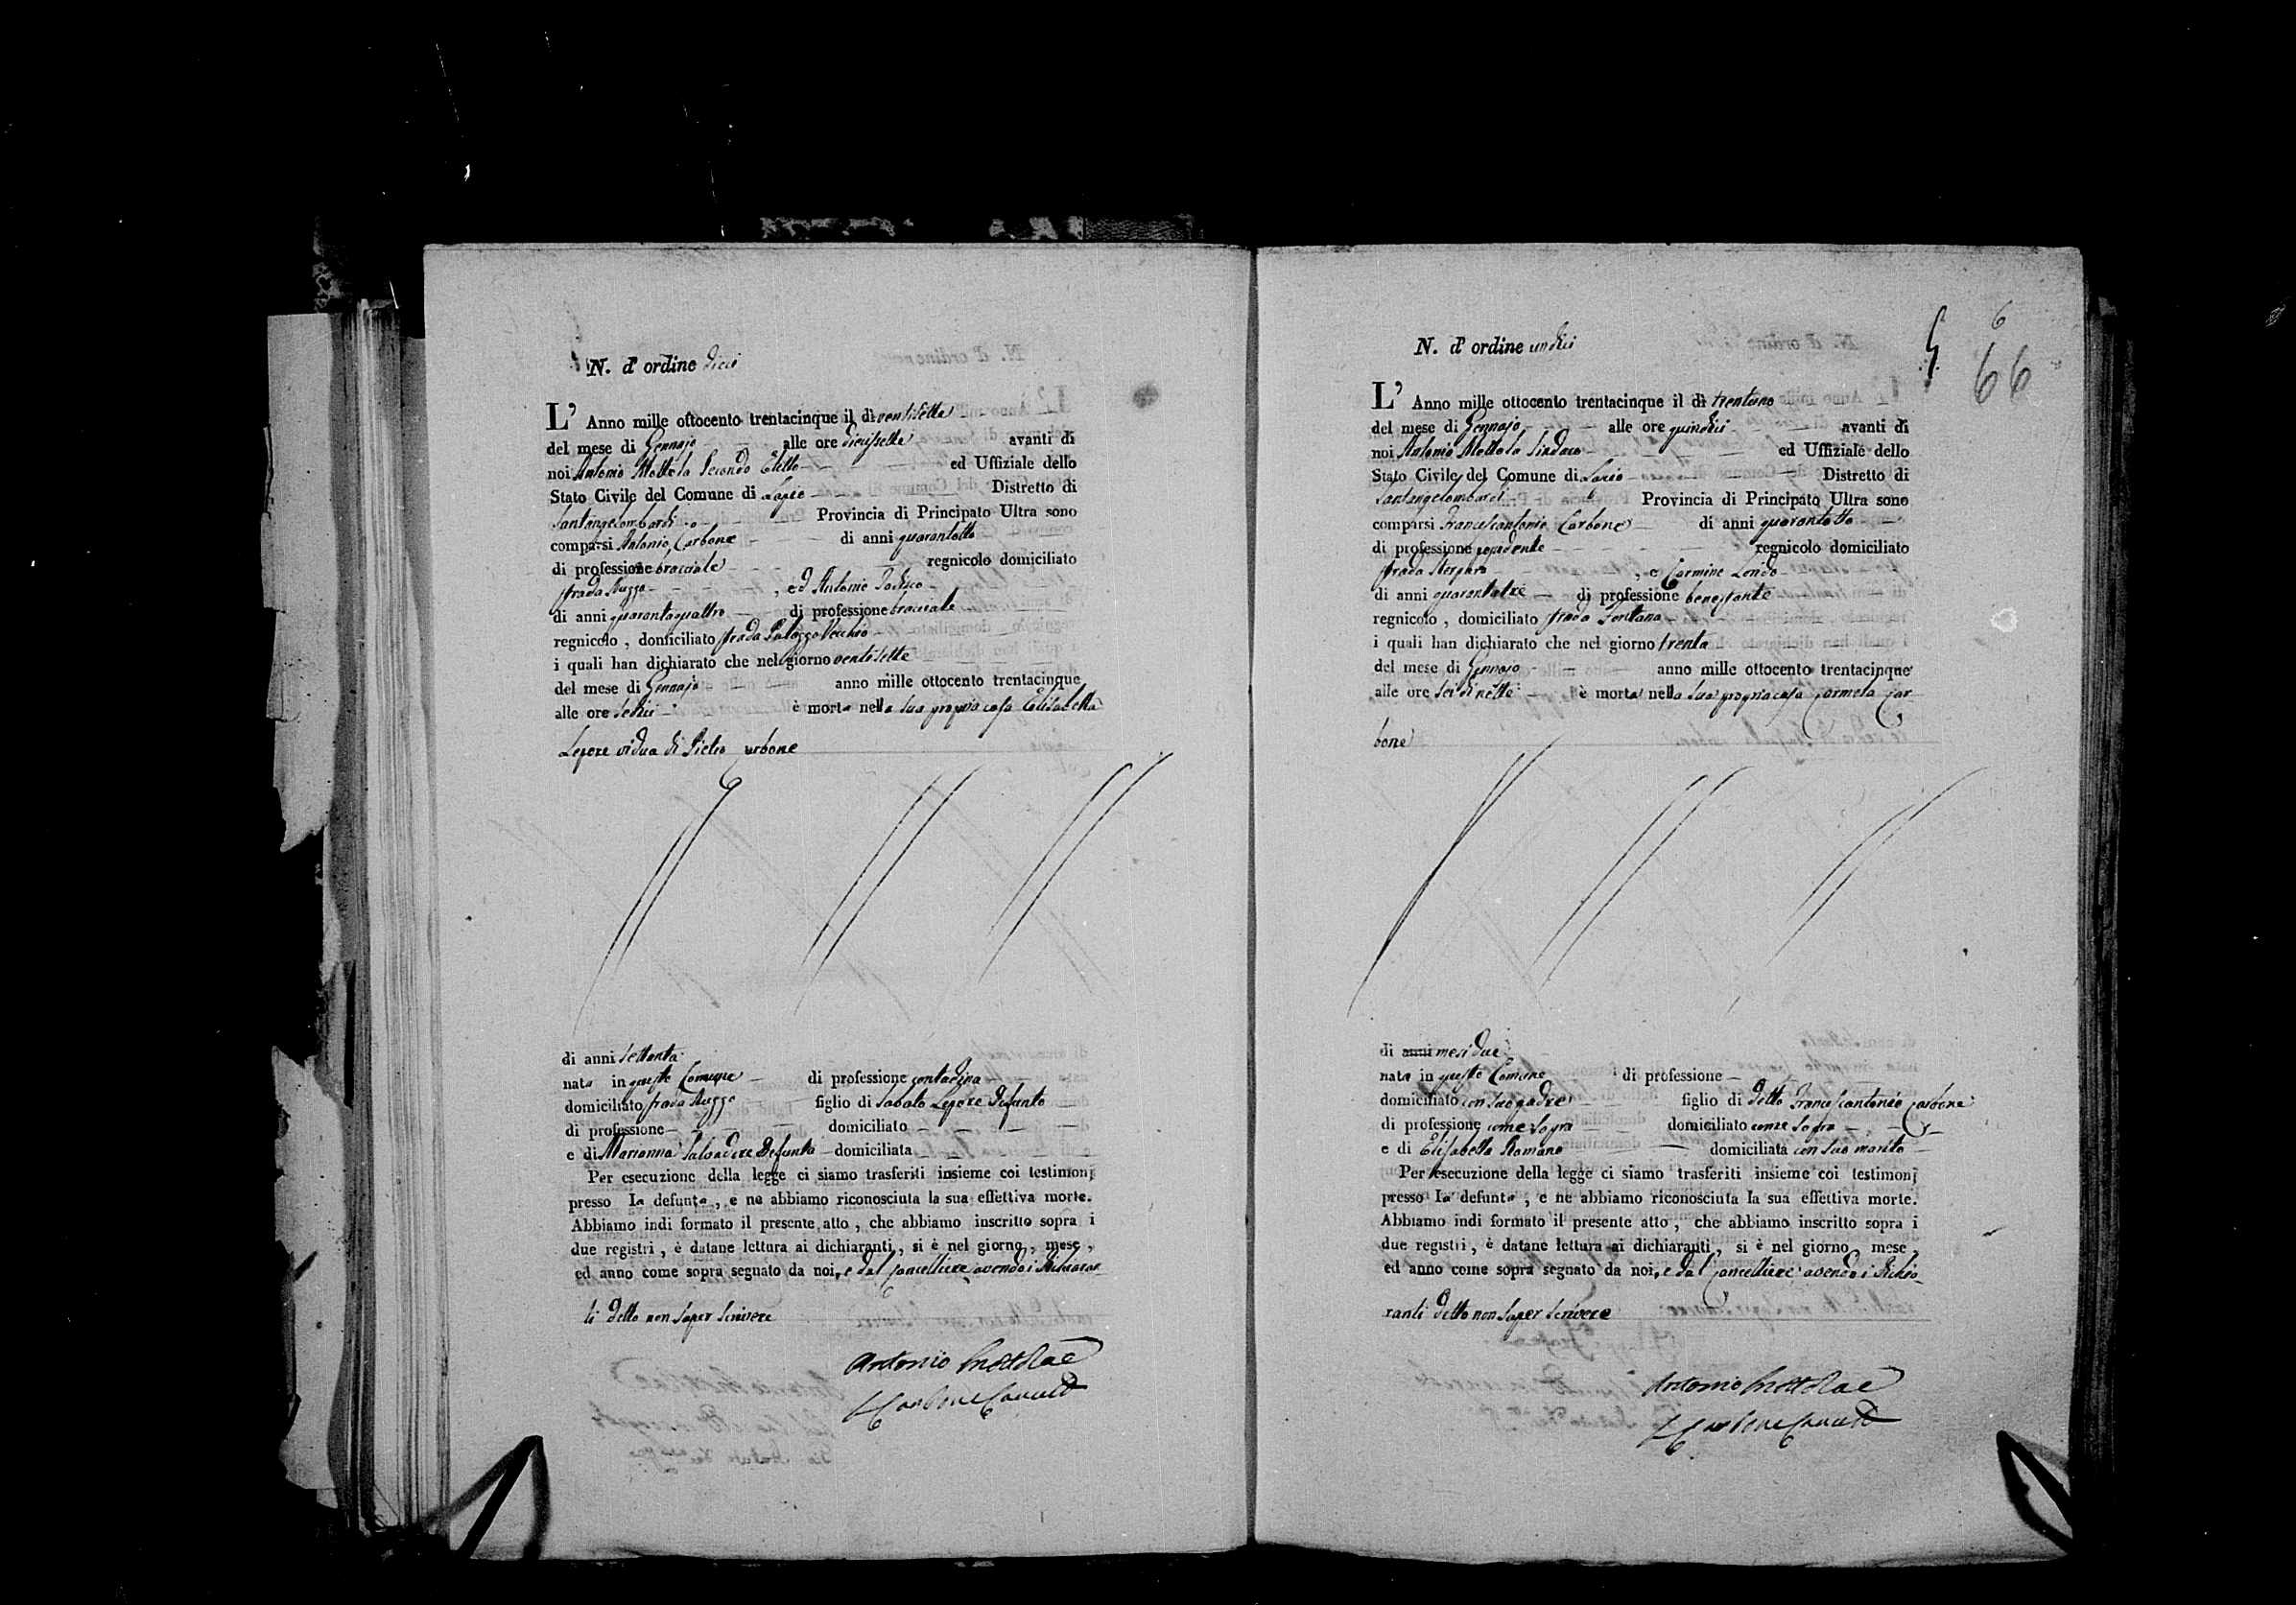 N. d' ordine dieci
L' Anno mille ottocento trentacinque il dì ventisette
del mese di Gennajo alle ore diecisette avanti di
noi Antonio Mottola Secondo Eletto ed Uffiziale dello
Stato Civile del Comune di Lapio Distretto di
Santangelombardi Provincia di Principato Ultra sono
comparsi Antonio Carbone di anni quarantotto
di professione bracciale regnicolo domiciliato
strada , ed Antonio
di anni quarantaquattro di professione bracciale
regnicolo , domiciliato strada Palazzo Vecchio
i quali han dichiarato che nel giorno ventisette
del mese di Gennajo anno mille ottocento trentacinque
alle ore sedici è morta nella sua propria casa Elisabetta
Lepore vidua di Pietro Carbone
di anni settanta
nata in questo Comune di professione contadina
domiciliato strada figlio di Sabato Lepore defunto
di professione domiciliato
e di Marianna Salvadore defunta domiciliata
Per esecuzione della legge ci siamo trasferiti insieme coi testimonj
presso la defunta , e ne abbiamo riconosciuta la sua effettiva morte.
Abbiamo indi formato il presente atto , che abbiamo inscritto sopra i
due registri , è datane lettura ai dichiaranti , si è nel giorno , mese ,
ed anno come sopra segnato da noi, e dal Cancelliere avendo i dichiaran-
ti detto non saper scrivere
Antonio Mottolae
Carbone
6
66
N. d' ordine undici
L' Anno mille ottocento trentacinque il dì trentuno
del mese di Gennajo alle ore quindici avanti di
noi Antonio Mottola Sindaco ed Uffiziale dello
Stato Civile del Comune di Lapio Distretto di
Santangelombardi Provincia di Principato Ultra sono
comparsi Francescantonio Carbone di anni quarantotto
di professione possidente regnicolo domiciliato
strada , e Carmine
di anni quarantatre di professione benestante
regnicolo , domiciliato strada Fontana
i quali han dichiarato che nel giorno trenta
del mese di Gennajo anno mille ottocento trentacinque
alle ore sei di notte è morta nella sua propria casa Carmela Car
bone
di anni mesi due
nata in questo Comune di professione
domiciliato con suo padre figlio di detto Francescantonio Carbone
di professione come sopra domiciliato come sopra
e di Elisabetta Romano domiciliata con suo marito
Per esecuzione della legge ci siamo trasferiti insieme coi testimonj
presso la defunta , e ne abbiamo riconosciuta la sua effettiva morte.
Abbiamo indi formato il presente atto , che abbiamo inscritto sopra i
due registri , è datane lettura ai dichiaranti , si è nel giorno mese ,
ed anno come sopra segnato da noi, e dal Cancelliere avendo i dichia-
ranti detto non saper scrivere
Antonio Mottolae
Carbone